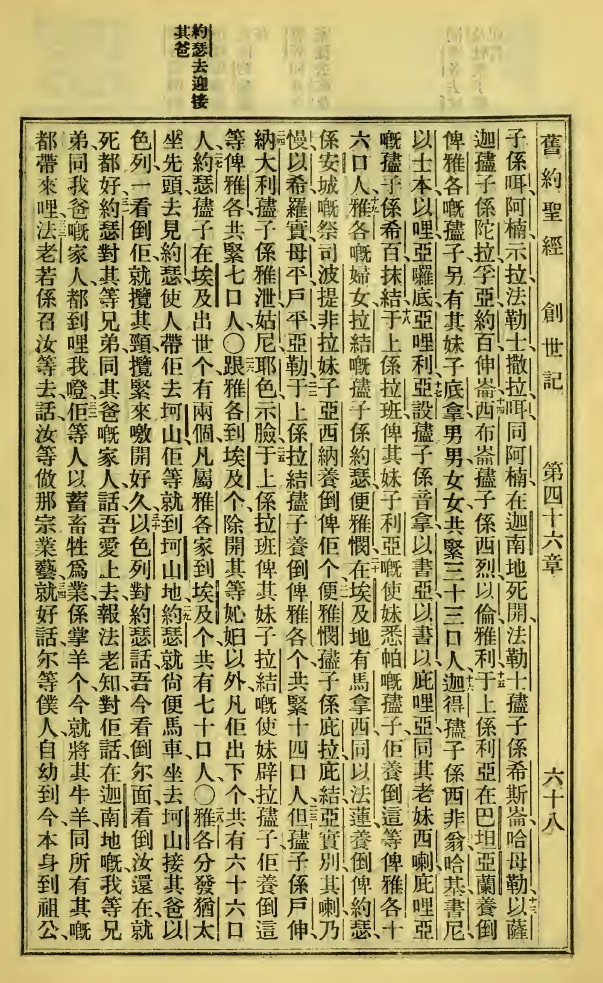 約瑟去迎接
其爸
舊約聖經 創世記 第四十六章 六十八
子係咡阿楠示拉法勒士撒拉咡同阿楠在迦南地死開法勒士孻子係希斯崙哈母勒十三以薩
迦孻子係陀拉孚亞約百伸崙十四西布崙孻子係西烈以倫雅利十五于上係利亞在巴坦亞蘭養倒
俾雅各嘅孻子另有其妹子底拿男男女女共緊三十三口人十六迦得孻子係西非翁哈基書尼
以士本以哩亞囉底亞哩利十七亞設孻子係音拿以書亞以書以庇哩亞同其老妹西喇庇哩亞
嘅孻子係希百抹結十八于上係拉班俾其妹子利亞嘅使妹悉帕嘅孻子佢養倒這等俾雅各十
六口人十九雅各嘅婦女拉結嘅孻子係約瑟便雅憫二十在埃及地有馬拿西同以法蓮養倒俾約瑟
係安城嘅祭司波提非拉妹子亞西納養倒俾佢个二一便雅憫孻子係庇拉庇結亞實別其喇乃
慢以希羅實母平戶平亞勒二二于上係拉結孻子養倒俾雅各个共緊十四口人二三但孻子係戶伸
二四納大利孻子係雅泄姑尼耶色示臉二五于上係拉班俾其妹子拉結嘅使妹辟拉孻子佢養倒這
等俾雅各共緊七口人〇二六跟雅各到埃及个除開其等妣妇以外凡佢出下个共有六十六口
人二七約瑟孻子在埃及出世个有兩個凡屬雅各家到埃及个共有七十口人〇二八雅各分發猶太
坐先頭去見約瑟使人帶佢去坷山佢等就到坷山地二九約瑟就尙便馬車坐去坷山接其爸以
色列一看倒佢就攬其頸攬緊來噭開好久三十以色列對約瑟話吾今看倒尔面看倒汝還在就
死都好三一約瑟對其等兄弟同其爸嘅家人話吾愛上去報法老知對佢話在迦南地嘅我等兄
弟同我爸嘅家人都到哩我嶝三二佢等人以蓄畜牲爲業係掌羊个今就將其牛羊同所有其嘅
都帶來哩三三法老若係召汝等去話汝等做那宗業藝三四就好話尔等僕人自幼到今本身到祖公